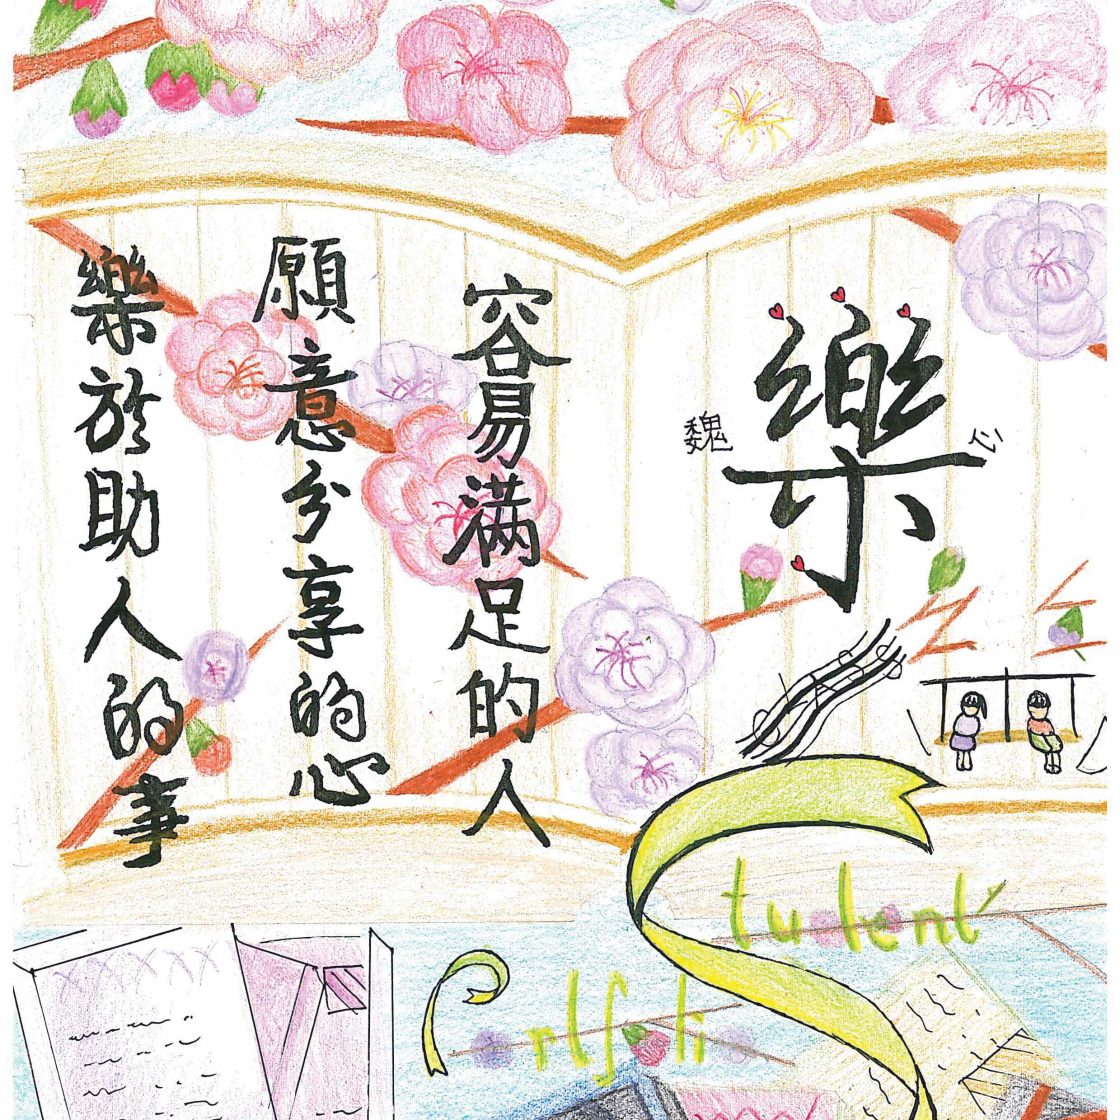 樂
魏
容易滿足的人
願意分享的心
樂於助人的事
Student
Portfolio